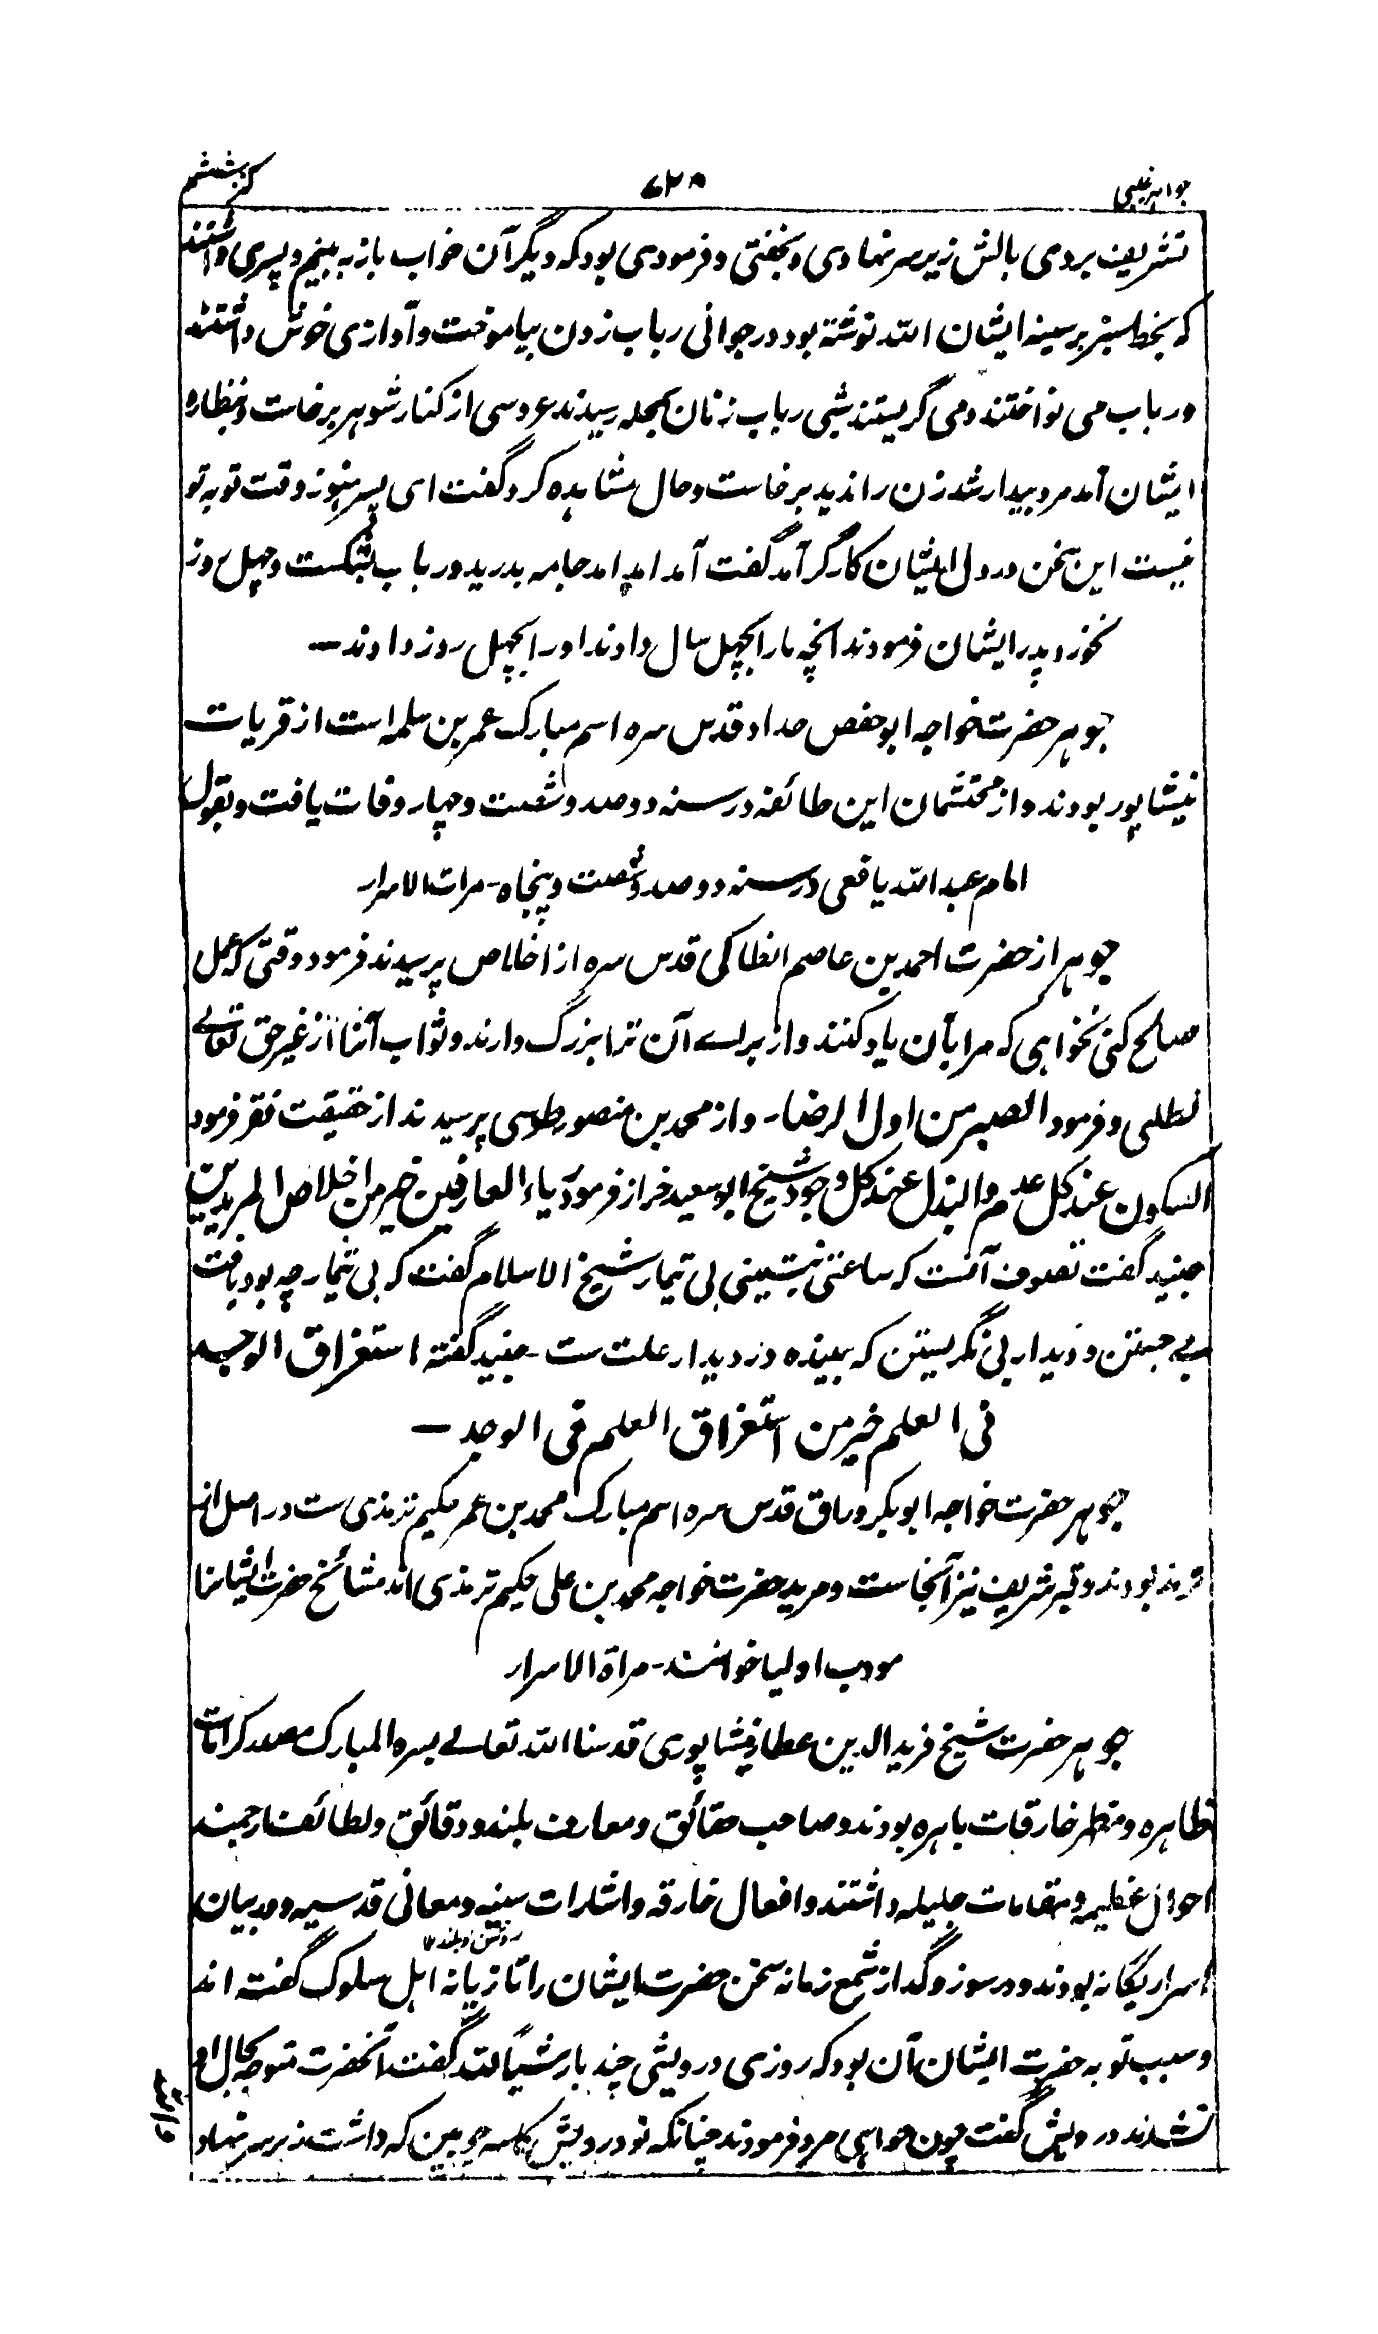 جواہر غیبی ۶۲۸ کنز ششم
تشریف بردی بالش زیر سر نهادی و بخفتی و فرمودی بود که دیگر آن خواب باز به بینم و پسری داشتند
که بخط سبز بر سینه ایشان الله نوشته بود در جوانی رباب زدن بیاموخت و آوازی خوش داشتند
و رباب می نواختند و می گریستند شبی رباب زنان بمحله رسیدند عروسی از کنار شوهر برخاست و بنظاره
ایشان آمد مرد بیدار شد زن را ندید برخاست و حال مشاهده کرد گفت ای پسر هنوز وقت توبه تو
نیست این سخن در دل ایشان کارگر آمد گفت آمد آمد آمد جامه بدرید و رباب بشکست و چهل روز
نخورد پدر ایشان فرمودند آنچه ما را بچهل سال دادند او را بچهل روز دادند ـ
جوهر حضرت خواجه ابو حفص حداد قدس سره اسم مبارک عمر بن سلمه است از قریات
نیشاپور بودند و از محتشمان این طائفه در سنه دو صد و شصت و چهار وفات یافت و بقول
امام عبد الله یافعی در سنه دو صد و شصت و پنجاه ـ مرات الاسرار
جوهر از حضرت احمد بن عاصم انطاکی قدس سره از اخلاص پرسیدند فرمود وقتی که عمل
صالح کنی نخواهی که مرا بآن یاد کنند و از برای آن ترا بزرگ دارند و ثواب آنرا از غیر حق تعالے
نطلبی و فرمود الصبر من اول الرضا ـ و از محمد بن منصور طوسی پرسیدند از حقیقت فقر فرمود
السکون عند کل عدم والبذل عند کل وجود شیخ ابو سعید خراز فرمود ریاء العارفین خیر من اخلاص المریدین
جنید گفت تصوف آنست که ساعتی بنشینی بی تیمار شیخ الاسلام گفت که بی تیمار چه بود یافت
بے جستن و دیدار بی نگریستن که بیننده در دیدار علت ست ـ جنید گفته استغراق الوجد
فی العلم خیر من استغراق العلم فی الوجد ـ
جوهر حضرت خواجه ابو بکر وراق قدس سره اسم مبارک محمد بن عمر حکیم ترمذی ست در اصل از
ترمذ بودند و قبر شریف نیز آنجاست و مرید حضرت خواجه محمد بن علی حکیم ترمذی اند مشائخ حضرت ایشانرا
مودب اولیا خوانند ـ مراة الاسرار
جوهر حضرت شیخ فرید الدین عطار نیشاپوری قدسنا الله تعالے بسره المبارک مصدر کرامات
ظاهره و مظهر خارقات باهره بودند و صاحب حقائق و معارف بلند و دقائق و لطائف ارجمند
احوال عظیمه و مقامات جلیله داشتند و افعال خارقه و اشارات سنیه و معانی قدسیه و در بیان
روشن و بلند ۱۲
اسرار یگانه بودند و در سوز و گداز شمع زمانه سخن حضرت ایشان را تازیانه اهل سلوک گفته اند
و سبب توبه حضرت ایشان آن بود که روزی درویشی چند بار شیئا لله گفت آنحضرت متوجه بحال او
نشدند درویش گفت چون خواهی مرد فرمودند چنانکه تو درویش کاسه چوبین که داشت زیر سر نهاد